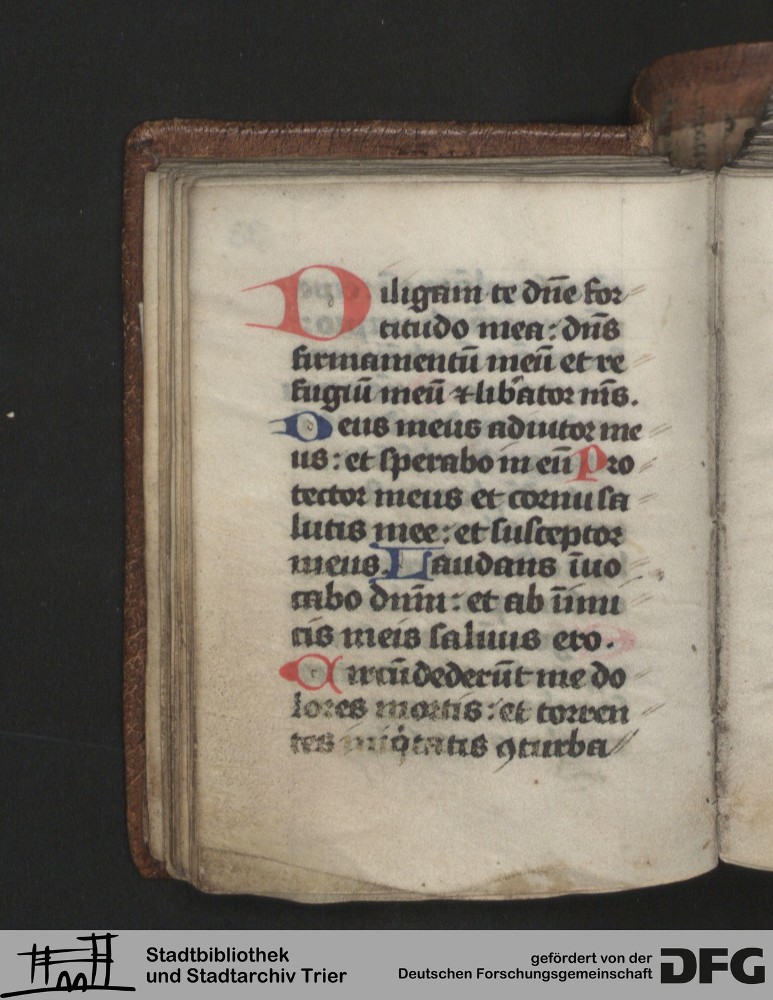 Diligam te dn̄e for
titudo mea : dn̄s
firmamentū meū et re
fugiū meū ⁊ lib'ator m̄s.
Deus meus adiutor me
us : et sperabo in eū Pro
tector meus et cornu sa
lutis mee : et susceptor
meus. Laudans īuo
cabo dnm̄ : et ab īimi
cis meis saluus ero.
Circūdederūt me do
lores mortis : et torren
tes iniq̇tatis ꝯturba
Stadtbibliothek
und Stadtarchiv Trier
gefördert von der
Deutschen Forschungsgemeinschaft
DFG